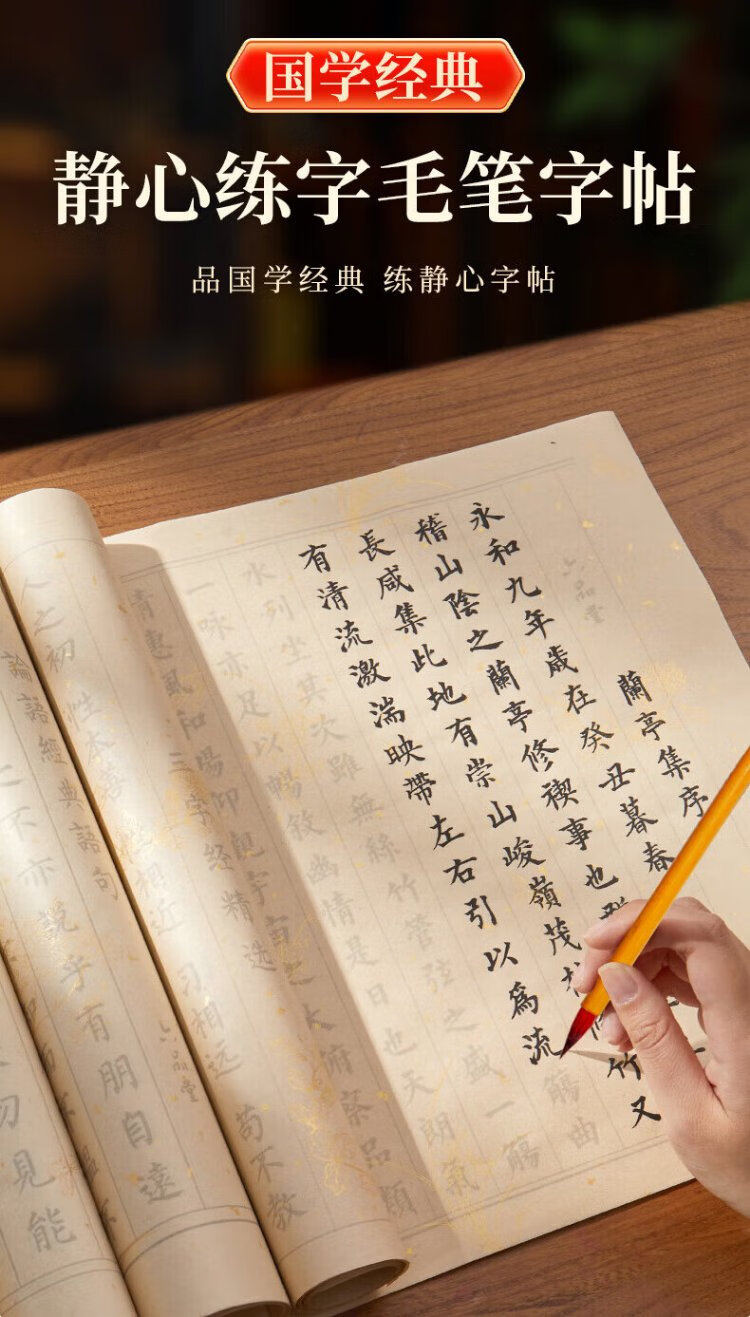 国学经典
静心练字毛笔字帖
品国学经典 练静心字帖
六品堂
蘭亭集序
永和九年歲在癸丑暮春
稽山陰之蘭亭修禊事也
長咸集此地有崇山峻嶺茂
竹又
有清流激湍映帶左右引以為流
觴曲
水列坐其次雖無絲竹管弦之盛一觴
一咏亦足以暢叙幽情是日也天朗氣
清惠風和暢仰觀宇宙之大俯察品類
三字经精选
人之初
性本善
性相近
习相远
苟不教
論語經典語句
六品堂
不亦
説乎有朋自遠
見能